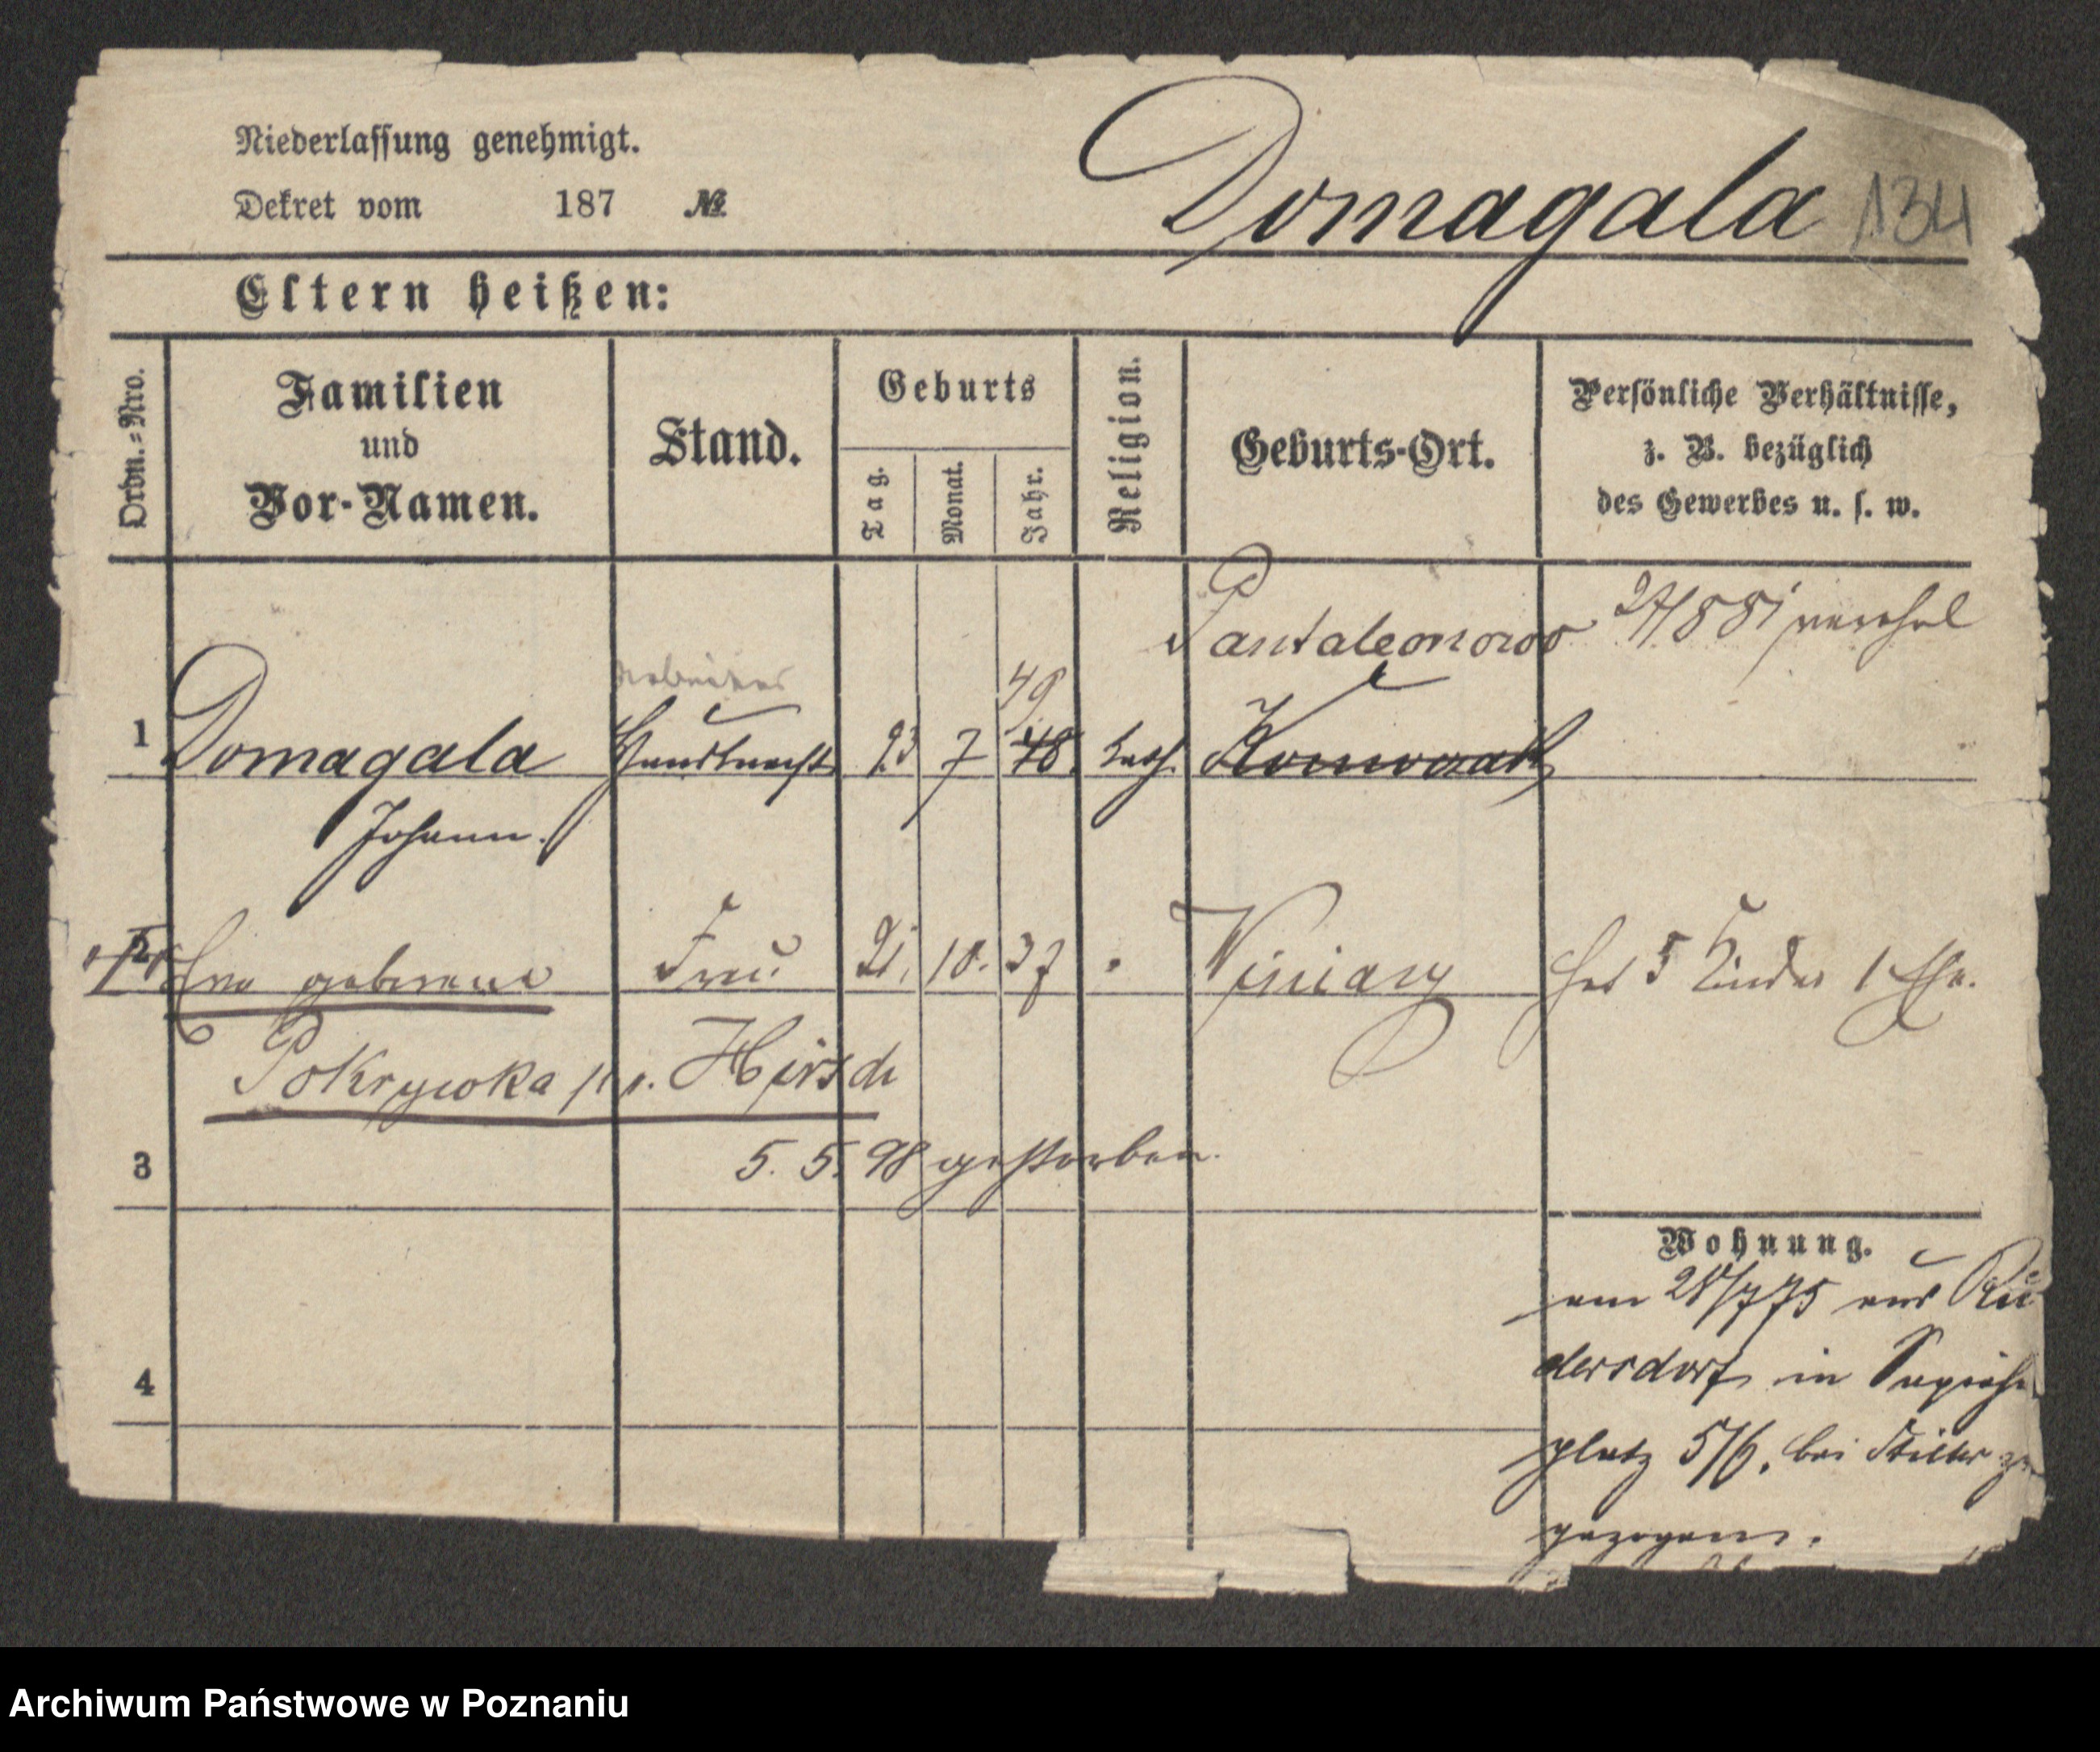 Niederlassung genehmigt.
Dekret vom 187 №
Domagala 134
Eltern heißen:
Ordn.=Nro.
Familien
und
Vor-Namen.
Stand.
Geburts
Tag.
Monat.
Jahr.
Religion.
Geburts-Ort.
Persönliche Verhältnisse,
z. B. bezüglich
des Gewerbes u. s. w.
Pantaleonowo
Arbeiter
49
1 Domagala Hausknecht 23 7 48. kath.
Johann.
2 Eva geborene Frau 21. 10. 37 Winiary hat 5 Kinder 1 Ehe.
Pokrywka Hirsch
5. 5. 98 gestorben.
3
Wohnung.
am 28/7 75 aus Rü
dersdorf in Sapieha
4
platz 5/6. bei Stiller
gezogen.
Archiwum Państwowe w Poznaniu